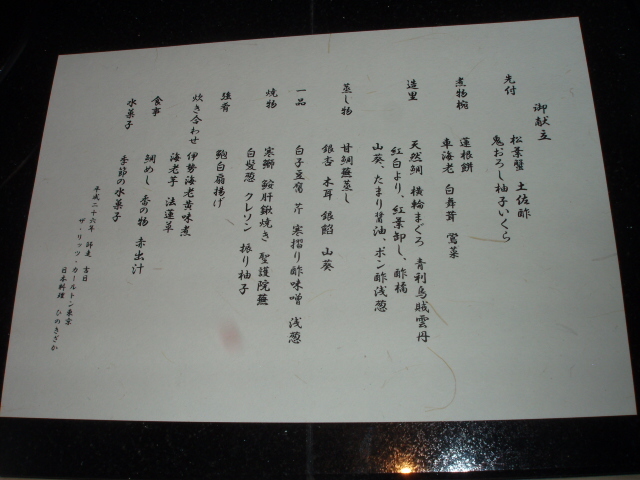 御献立
先付 松葉蟹 土佐酢
鬼おろし柚子いくら
煮物椀 蓮根餅
車海老 白舞茸 鶯菜
造里 天然鯛 横輪まぐろ 青利烏賊雲丹
紅白より、紅葉卸し、酢橘
山葵、たまり醤油、ポン酢浅葱
蒸し物 甘鯛蕪蒸し
銀杏 木耳 銀餡 山葵
一品 白子豆腐 芹 寒搾り酢味噌 浅葱
焼物 寒鰤 鮟肝鍬焼き 聖護院蕪
白髪葱 クレソン 振り柚子
強肴 鮑白扇揚げ
炊き合わせ 伊勢海老黄味煮
海老芋 法蓮草
食事 鯛めし 香の物 赤出汁
水菓子 季節の水菓子
平成二十六年 師走 吉日
ザ・リッツ・カールトン東京
日本料理 ひのきざか